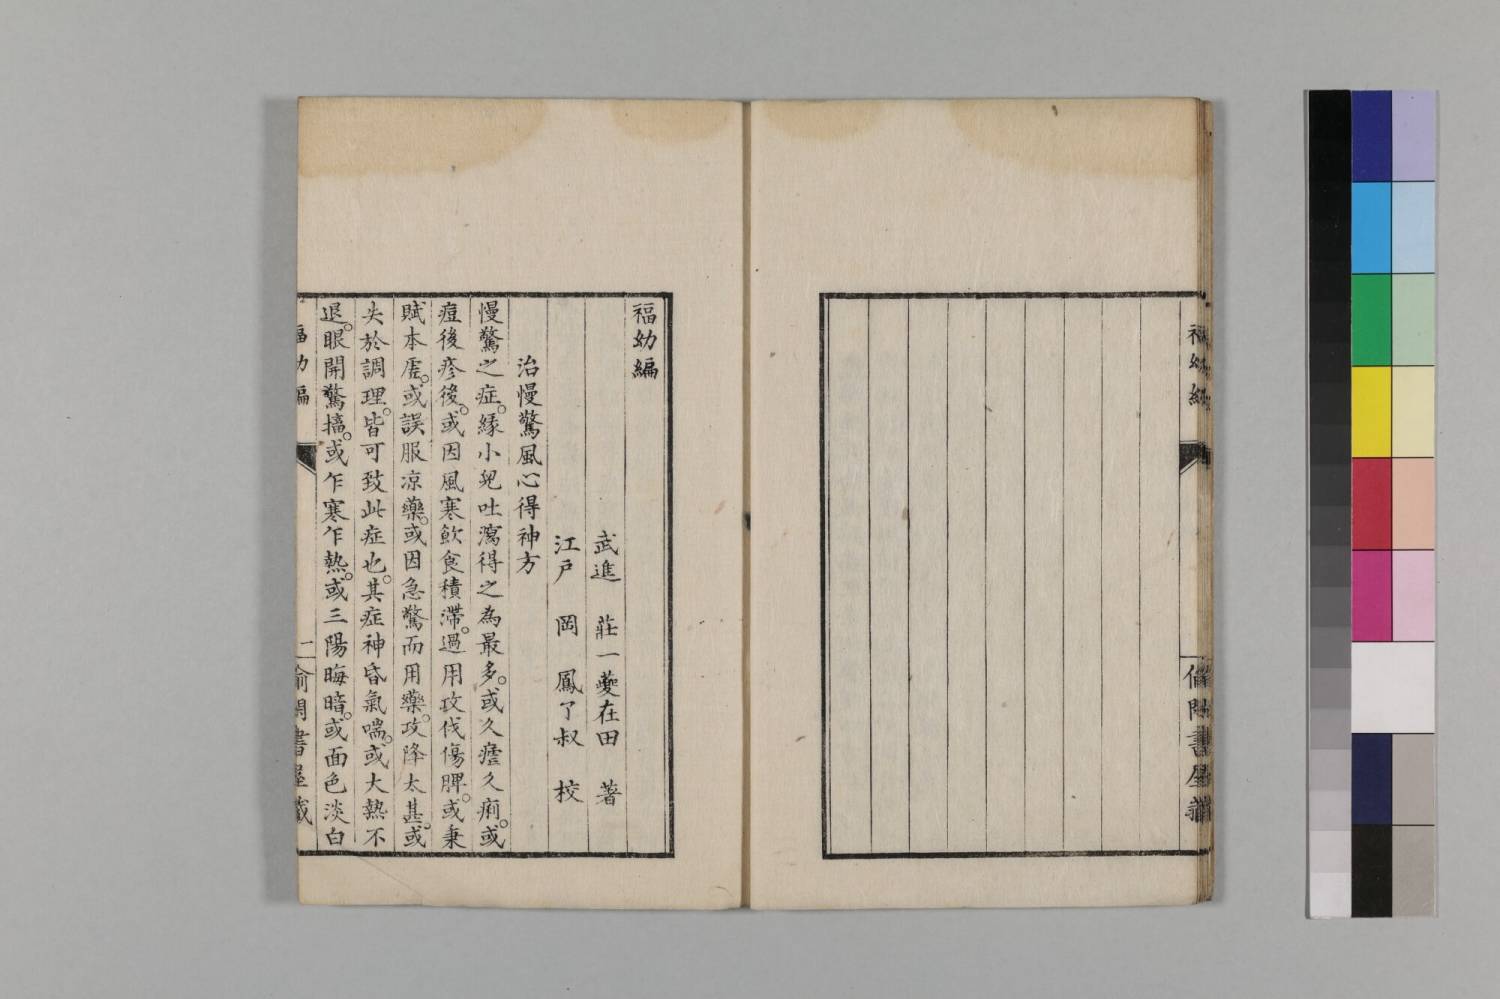 福幼編
偷閒書屋藏
福幼編
武進　莊一夔在田　著
江戸　岡　鳳了叔　校
治慢驚風心得神方
慢驚之症。緣小兒吐瀉得之為最多。或久瘧久痢。或
痘後疹後。或因風寒飲食積滯。過用攻伐傷脾。或秉
賦本虛。或誤服凉藥。或因急驚而用藥。攻降太甚。或
失於調理。皆可致此症也。其症神昏氣喘。或大熱不
退。眼開驚搐。或乍寒乍熱。或三陽晦暗。或面色淡白
福幼編
一
偷閒書屋藏